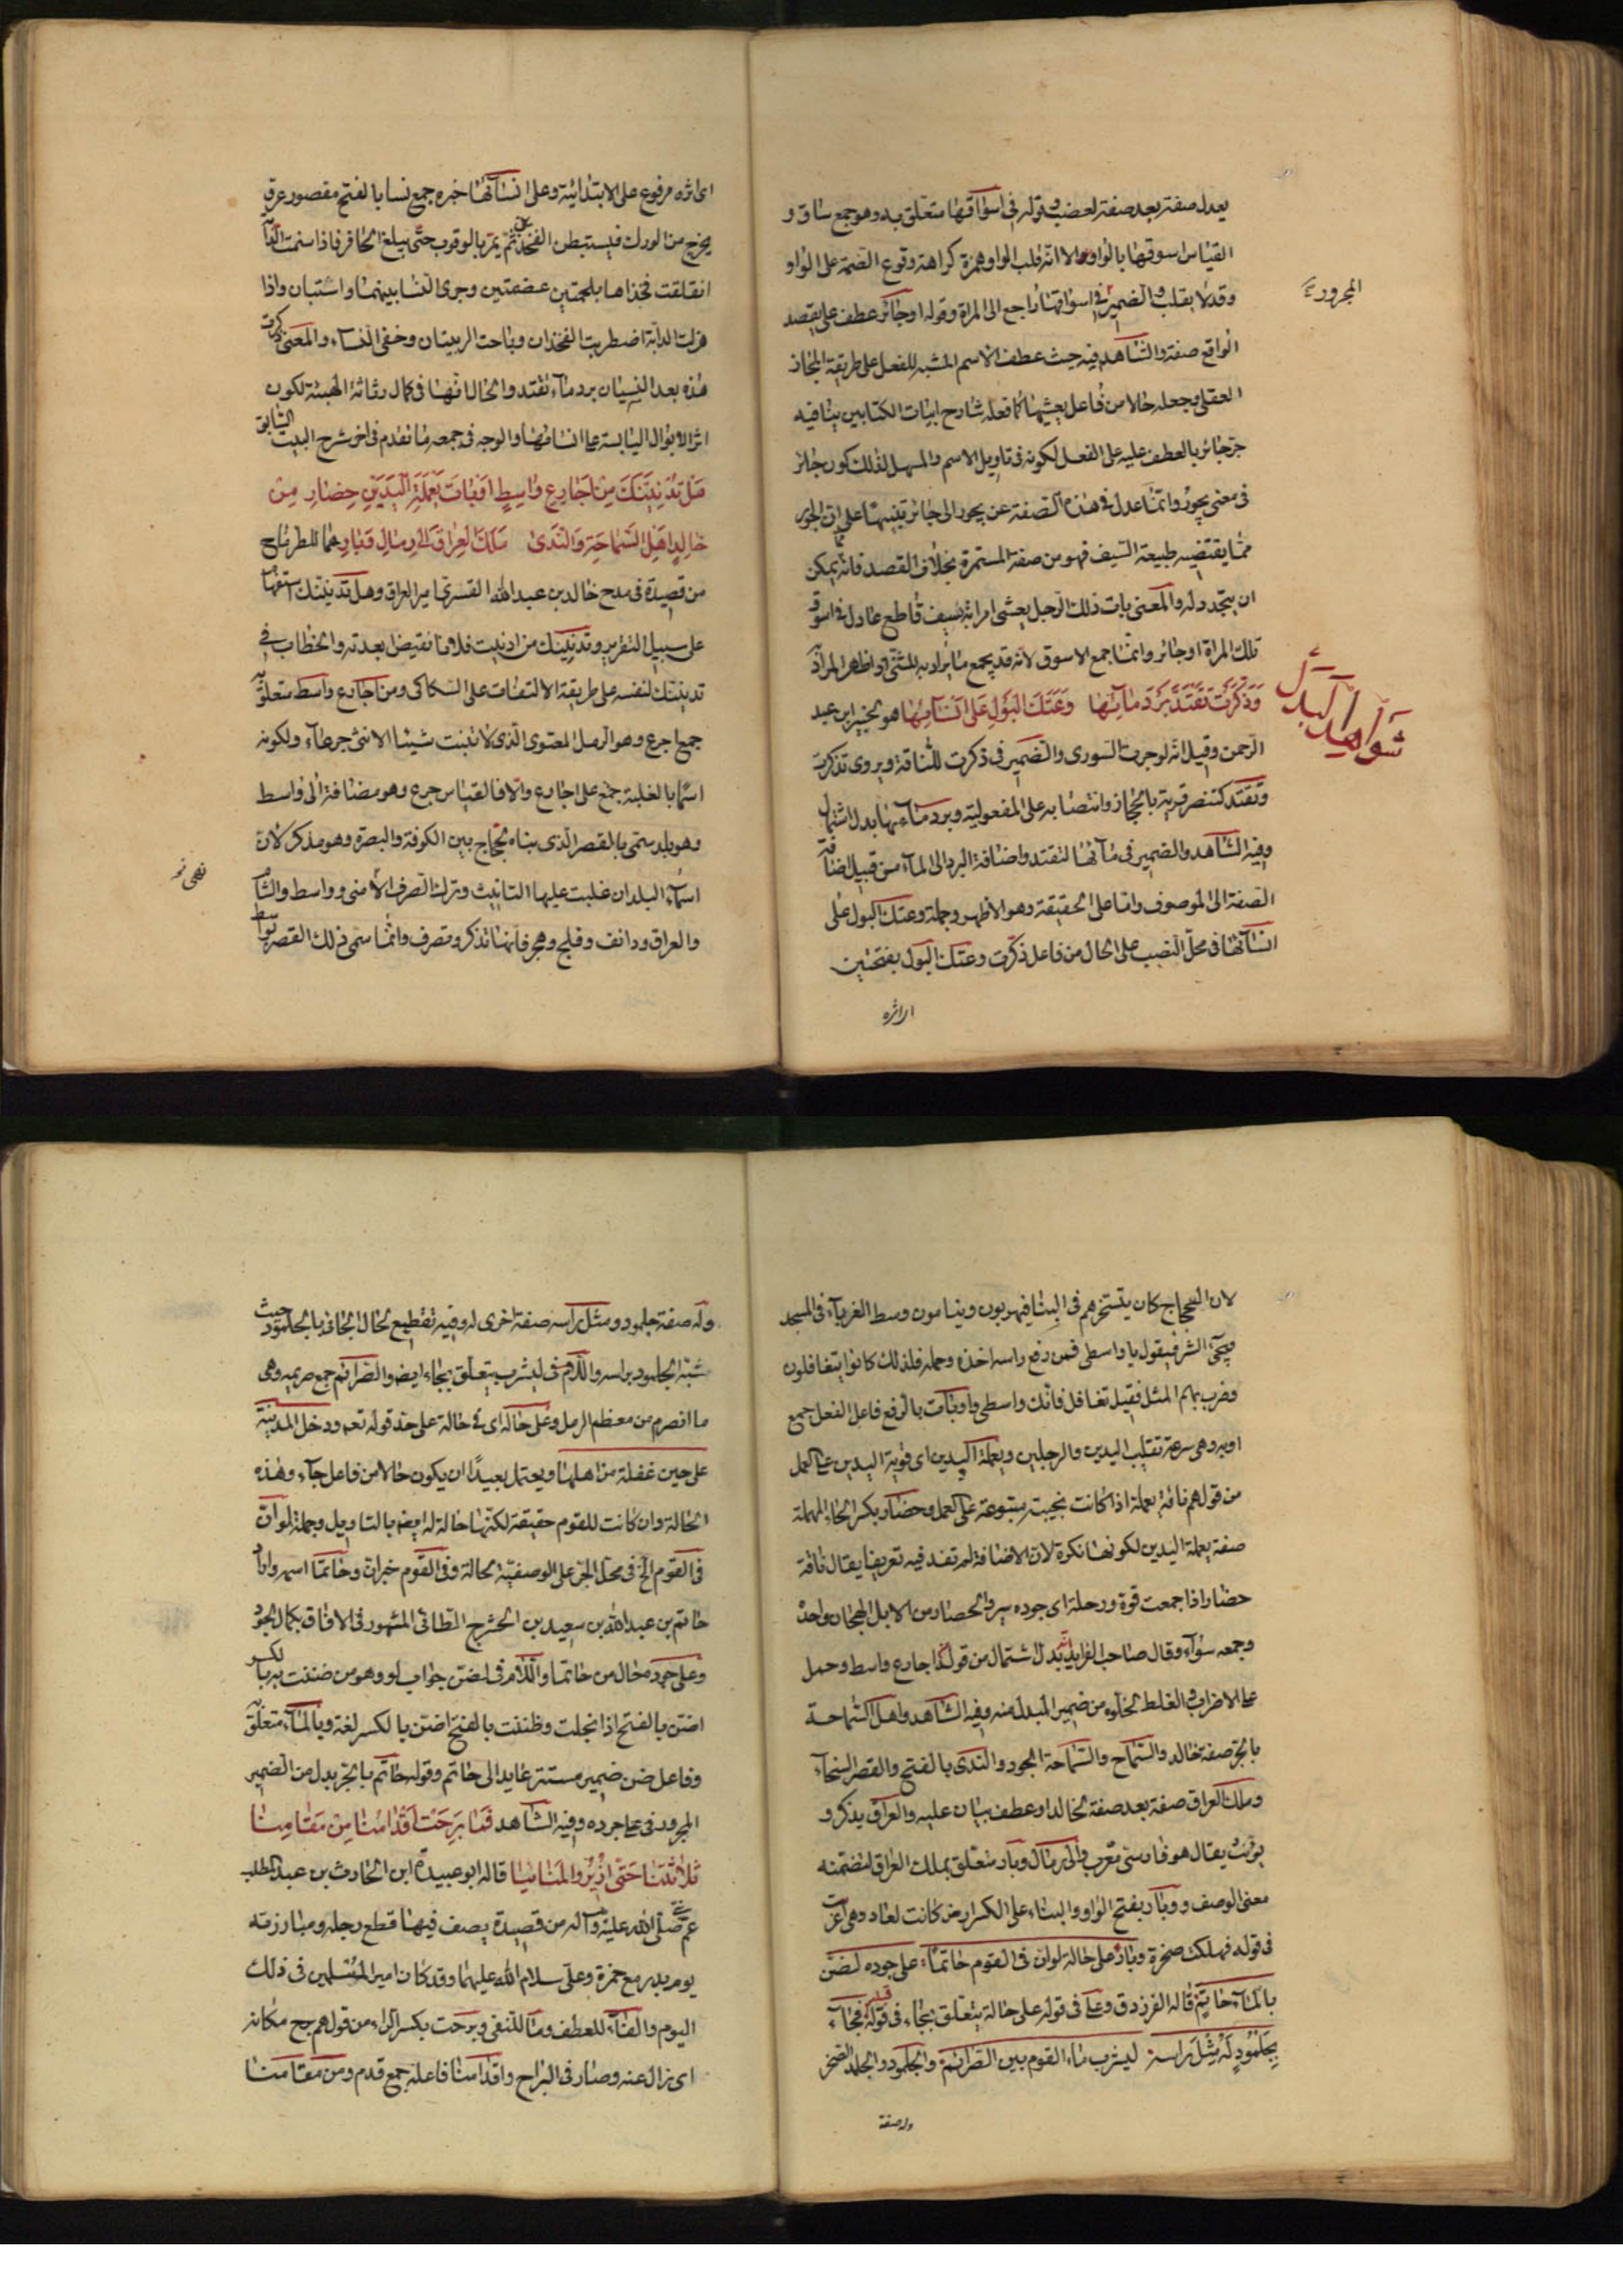 يعدل صفة بعد صفة لعضب وقوله في اسواقها متعلق به وهو جمع ساق و
القياس اسوقها بالواو الا انه قلب الواو همزة كراهة وقوع الضمة على الواو
وقد لا يقلب والضمير في اسواقها راجع الى المراة وقوله اوجائر عطف على يقصد
المجرور
الواقع صفة والشاهد فيه حيث عطف الاسم المشبه للفعل على طريقة المجاز
العقلى وجعله حالا من فاعل يعشيها كما فعله شارح ابيات الكتابين ينافيه
جر جائر بالعطف عليه على الفعل لكونه فى تاويل الاسم والمسهل لذلك كون جائر
فى معنى يجور وانما عدل فى هذه الصفة عن يجور الى جائر تنبيها على ان الجور
مما يقتضيه طبيعة السيف فهو من صفة المستمرة بخلاف القصد فانه يمكن
ان يتجدد له والمعنى بات ذلك الرجل يعشى امراته بسيف قاطع عادل فى اسوق
تلك المراة اوجائر وانما جمع الاسوق لانه قد يجمع ما يراد به المثنى او اظهر المراد
شواهد البدل
وَذَكَرَتْ تَقْتَدَ بَرْدَ مَائِهَا وَعَتَكُ الْبَوْلِ عَلَى اَنْسَائِهَا هو لجبير ابن عبد
الرحمن وقيل انه لوجرة السورى والضمير فى ذكرت للناقة ويروى تذكرت
وتقتد كتنصر قرية بالحجاز وانتصابه على المفعولية وبرد ماءها بدل اشتمال
وفيه الشاهد والضمير فى مآئها لتقتد واضافة البرد الى الماء من قبيل اضافة
الصفة الى الموصوف واما على الحقيقة وهو الاظهر وجملة وعتك البول على
انسآئها فى محل النصب على الحال من فاعل ذكرت وعتك البول بفتحتين
اى اثره
اى اثره مرفوع على الابتدائية وعلى انسآئها خبره جمع نسا بالفتح مقصور عرق
يخرج من الورك فيستبطن الفخذين ثم يمر بالعرقوب حتى يبلغ الحافر فاذا سمنت الدابة
انفلقت فخذاها بلحمتين عضمتين وجرى النسا بينهما واستبان واذا
هزلت الدابة اضطربت الفخذان وماجت الربلتان وخفى النساء والمعنى ذكرت
هذه بعد النسيان برد ماء تقتد والحال انها فى كمال رثاثة الهيئة لكون
اثر الابوال اليابسة على انسائها والوجه فى جمعه ما تقدم فى اخر شرح البيت السابق
هَلْ تُدْنِيَنَّكَ مِنْ اَجَارِعِ وَاسِطٍ اَوْبَاتُ يَعْمَلَةِ الْيَدَيْنِ حِضَارِ مِنْ
خَالِدٍ اَهْلِ السَّمَاحَةِ وَالنَّدَى مَلِكِ الْعِرَاقِ اِلَى رِمَالِ وَبَارِ هما للطرماح
من قصيدة فى مدح خالد بن عبد الله القسرى امير العراق وهل تدنينك استفهام
على سبيل التقرير وتدنينك من ادنيت فلانا نقيض ابعدته والخطاب فى
تدنينك لنفسه على طريقة الالتفات على السكاكى ومن اجارع واسط متعلق به
جمع اجرع وهو الرمل المستوى الذى لا تنبت شيئا الانثى جرعاء ولكونه
اسما بالغلبة جمع على اجارع والا فالقياس جرع وهو مضافة الى واسط
وهو بلد سمى بالقصر الذى بناه الحجاج بين الكوفة والبصرة وهو مذكر لان
اسماء البلدان غلبت عليها التانيث وترك الصرف الا منى وواسط والشام
والعراق ودانف وفلج وهجر فانها تذكر وتصرف وانما سمى ذلك القصر بواسط
لان الحجاج كان يتسخرهم فى البناء فيهربون وينامون وسط الغرباء فى المسجد
فيجئ الشرط فيقول يا واسطى فمن رفع راسه اخذه وحمله فلذلك كانوا يتغافلون
وضرب بهم المثل فقيل تغافل فانك واسطى واوبات بالرفع فاعل الفعل جمع
اوبة وهى سرعة تقليب اليدين والرجلين ويعملة اليدين اى قوية اليدين على العمل
من قولهم ناقة يعملة اذا كانت نجيبة مطبوعة على العمل وحضار بكسر الحاء المهملة
صفة يعملة اليدين لكونها نكرة لان الاضافة لم تفد فيه تعريفا يقال ناقة
حضار اذا جمعت قوة ورحلة اى جودة سير والحضار من الابل الهجان واحده
وجمعه سواء وقال صاحب الفرايد انه بدل اشتمال من قوله اجارع واسط وحمل
على الاضراب والغلط لخلوه من ضمير المبدل منه وفيه الشاهد واهل السماحة
بالجر صفة خالد والسماح والسماحة الجود والندى بالفتح والقصر السخاء
وملك العراق صفة بعد صفة لخالد او عطف بيان عليه والعراق يذكر و
يونث يقال هو فارسى معرب والى رمال وبار متعلق بملك العراق لتضمنه
معنى الوصف ووبار بفتح الواو والبناء على الكسر ارض كانت لعاد وهى اعربت
فى قوله فهلكت صخرة وبار على حالة لو ان فى القوم حاتما على جوده لضن
بالماء حاتم قاله الفرزدق وعلى فى قوله على حالة يتعلق بجاء فى قوله قبله فجاء
بِجُلْمُودٍ لَهُ مِثْلَ رَاسِهِ ليشرب ماء القوم بين الصرائم والجلمود والجلمد الصخر
وله صفة
وله صفة جلمود ومثل راسه صفة اخرى له وفيه تقطيع لحال الجانى بالجلمود حيث
شبه الجلمود براسه واللام فى ليشرب يتعلق بجاء ايضا والصرائم جمع صريمة وهى
ما انصرم من معظم الرمل وعلى حالة اى فى حالة على حد قوله تعه ودخل المدينة
على حين غفلة من اهلها ويحتمل بعيدا ان يكون حالا من فاعل جاء وهذه
الحالة وان كانت للقوم حقيقة لكنها حالة له ايضا بالتاويل وجملة لو ان
فى القوم الخ فى محل الجر على الوصفية لحالة وفى القوم خبر ان وحاتما اسمه واراد
حاتم بن عبد الله بن سعيد بن الحشرج الطائى المشهور فى الافاق بكمال الجود
وعلى جوده حال من حاتما واللام فى لضن جواب لو وهو من ضننت به بالكسر
اضن بالفتح اذا بخلت وظننت بالفتح اضن بالكسر لغة وبالماء متعلق به
وفاعل ضن ضمير مستتر عايد الى حاتم وقوله حاتم بالجر بدل من الضمير
المجرور فى على جوده وفيه الشاهد فَمَا بَرِحَتْ اَقْدَامُنَا مِنْ مَقَامِنَا
ثَلَاثَتُنَا حَتَّى اُزِيرُوا الْمَنَائِيَا قاله ابو عبيدة ابن الحارث بن عبد المطلب
عم النبى صلى الله عليه وآله من قصيدة يصف فيها قطع رجله ومبارزته
يوم بدر مع حمزة وعلى سلام الله عليهما وقد كان امير المسلمين فى ذلك
اليوم والفاء للعطف وما للنفى وبرحت بكسر الراء من قولهم برح مكانه
اى زال عنه وصار فى البراح واقدامنا فاعله جمع قدم ومن مقامنا